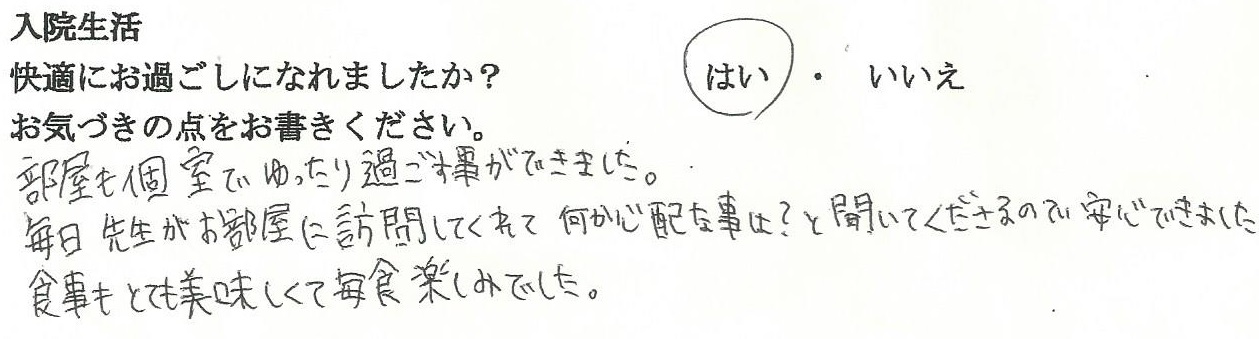 入院生活
快適にお過ごしになれましたか？ はい ・ いいえ
お気づきの点をお書きください。
部屋も個室でゆったり過ごす事ができました。
毎日先生がお部屋に訪問してくれて何か心配な事は？と聞いてくださるので安心できました
食事もとても美味しくて毎食楽しみでした。